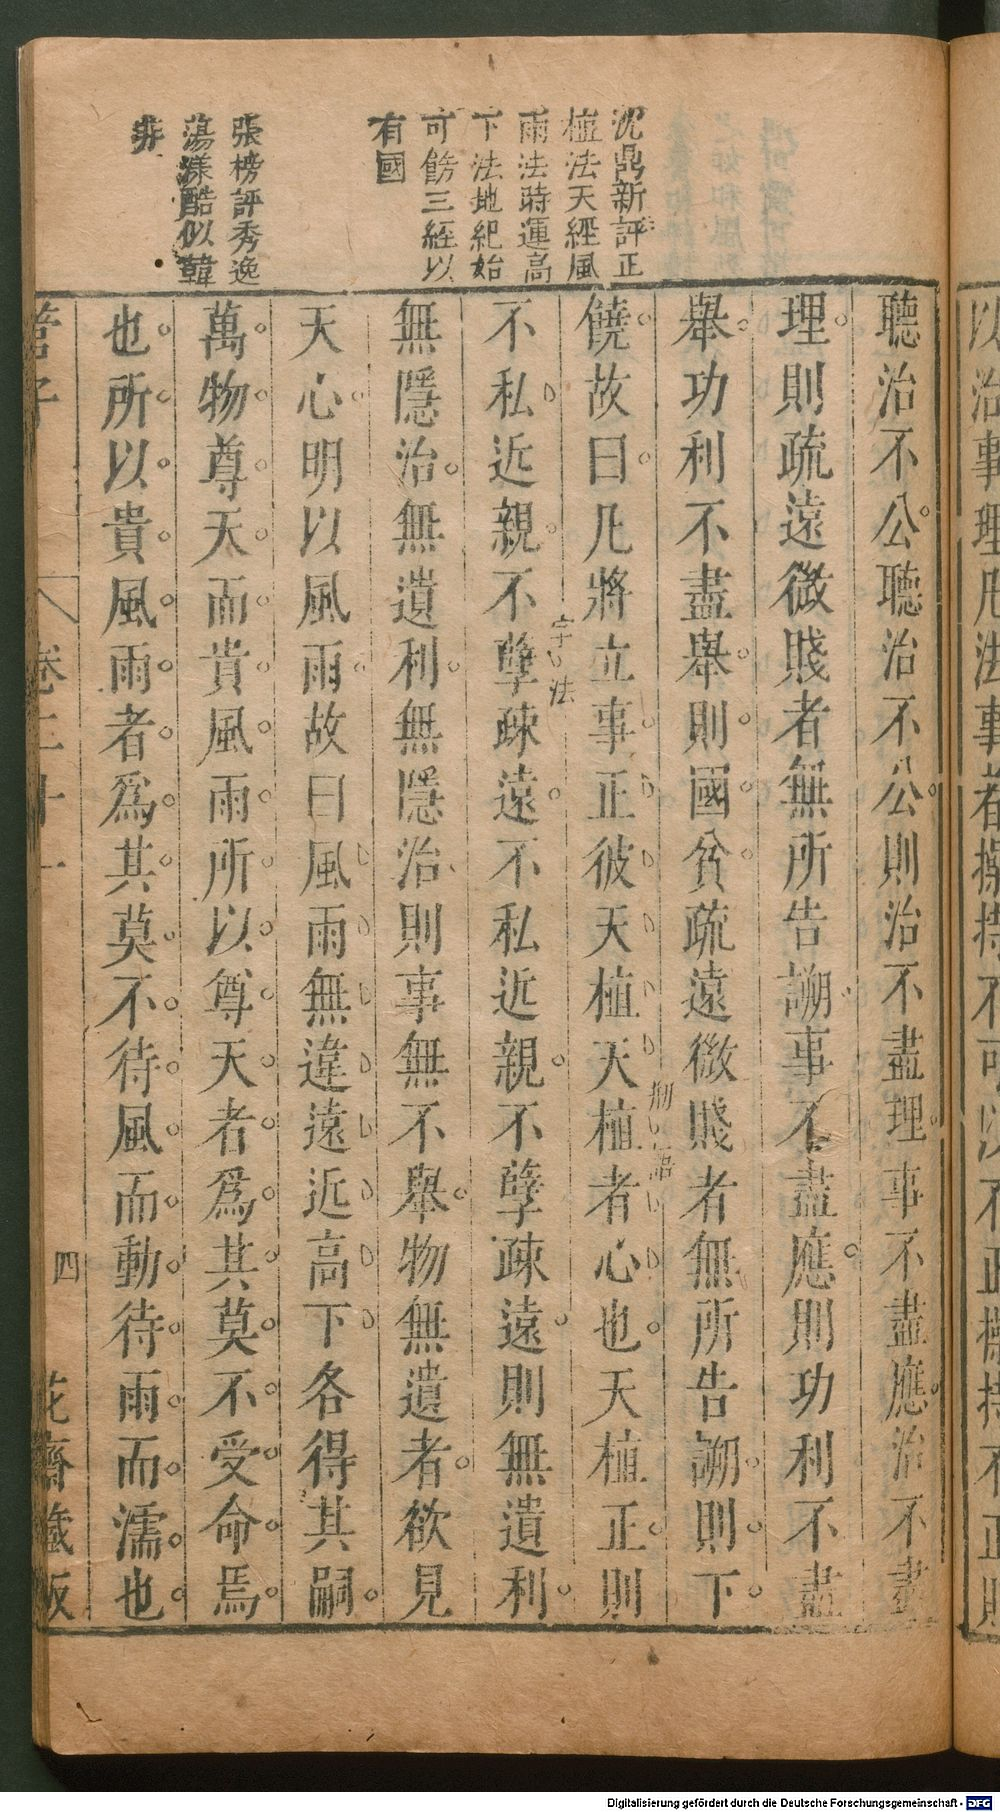 沈鼎新評正
植法天經風
雨法時運高
下法地紀始
可飭三經以
有國
張榜評秀逸
蕩漾酷似韓
非
聽治不公聽治不公則治不盡理事不盡應治不盡
理則疏遠微賤者無所告謝事不盡應則功利不盡
舉功利不盡舉則國貧疏遠微賤者無所告謝則下
饒故曰凡將立事正彼天植天植者心也天植正則
不私近親不孽疎遠不私近親不孽疎遠則無遺利
無隱治無遺利無隱治則事無不舉物無遺者欲見
天心明以風雨故曰風雨無違遠近高下各得其嗣
萬物尊天而貴風雨所以尊天者爲其莫不受命焉
也所以貴風雨者爲其莫不待風而動待雨而濡也
字法
管子
四
花齋藏板
Digitalisierung gefördert durch die Deutsche Forschungsgemeinschaft - DFG